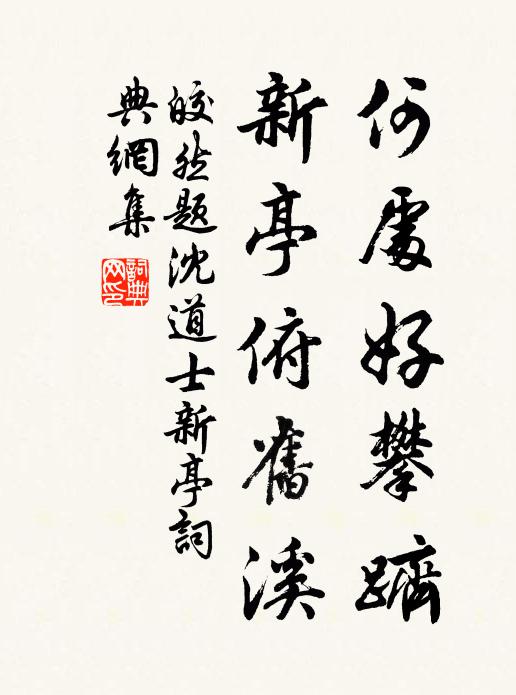 何處好攀躋
新亭俯舊溪
皎然題沈道士新亭詞
典網集
詞典
网印